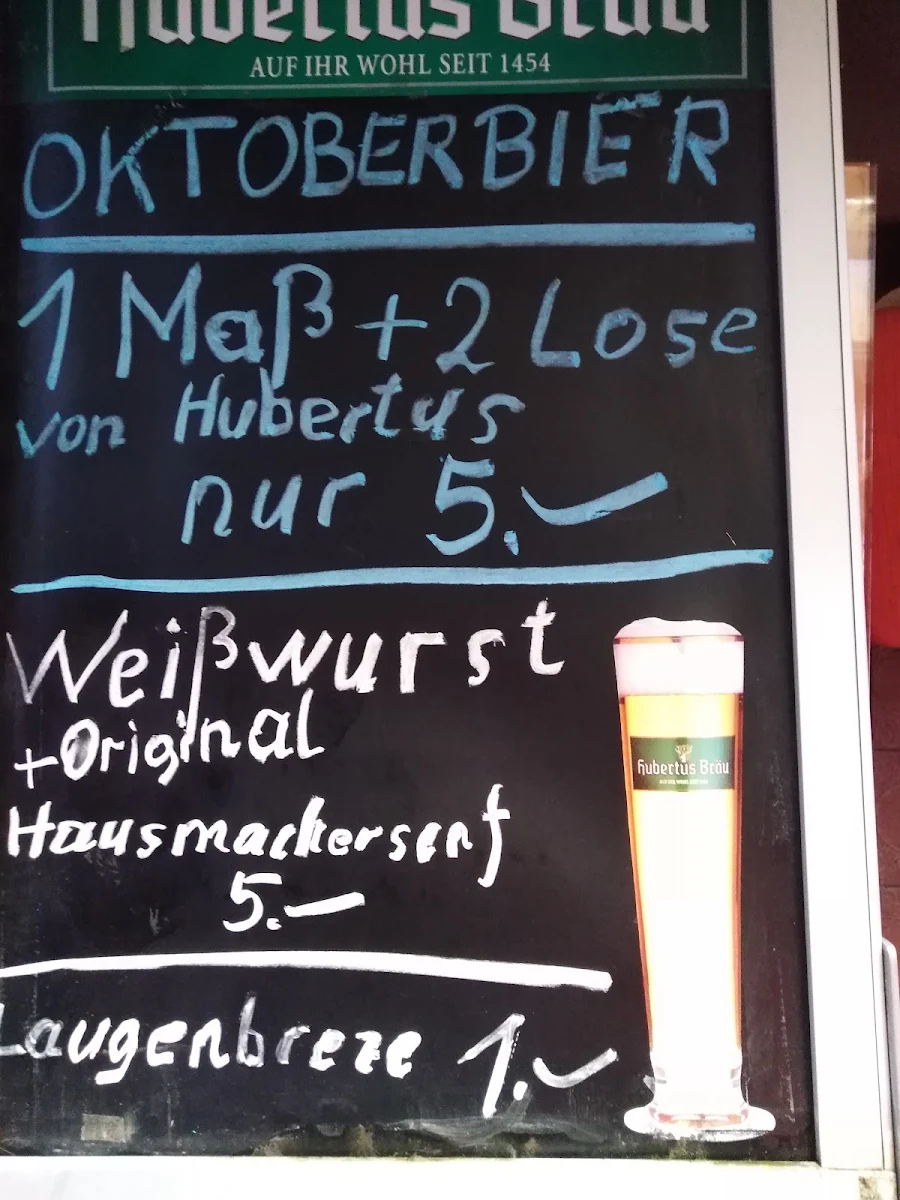 Hubertus Bräu
AUF IHR WOHL SEIT 1454
OKTOBERBIER
1 Maß + 2 Lose
von Hubertus
nur 5.-
Weißwurst
+Original
Hausmackersenf
5.-
Laugenbreze 1.-
Hubertus Bräu
AUF IHR WOHL SEIT 1454